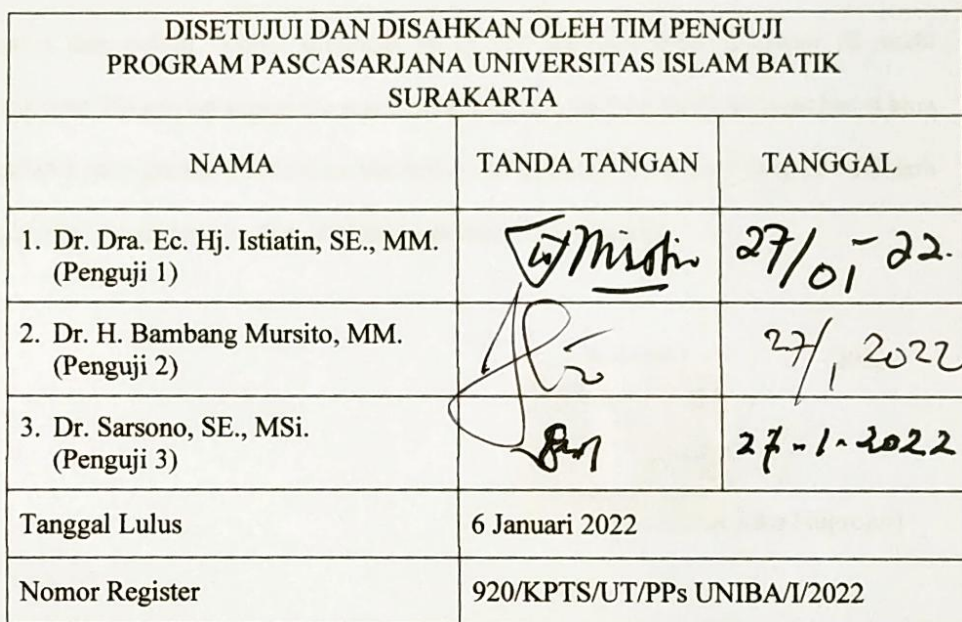 DISETUJUI DAN DISAHKAN OLEH TIM PENGUJI
PROGRAM PASCASARJANA UNIVERSITAS ISLAM BATIK
SURAKARTA
NAMA TANDA TANGAN TANGGAL
1. Dr. Dra. Ec. Hj. Istiatin, SE., MM. 27/01-22.
(Penguji 1)
2. Dr. H. Bambang Mursito, MM. 27/1 2022
(Penguji 2)
3. Dr. Sarsono, SE., MSi. 27-1-2022
(Penguji 3)
Tanggal Lulus 6 Januari 2022
Nomor Register 920/KPTS/UT/PPs UNIBA/I/2022